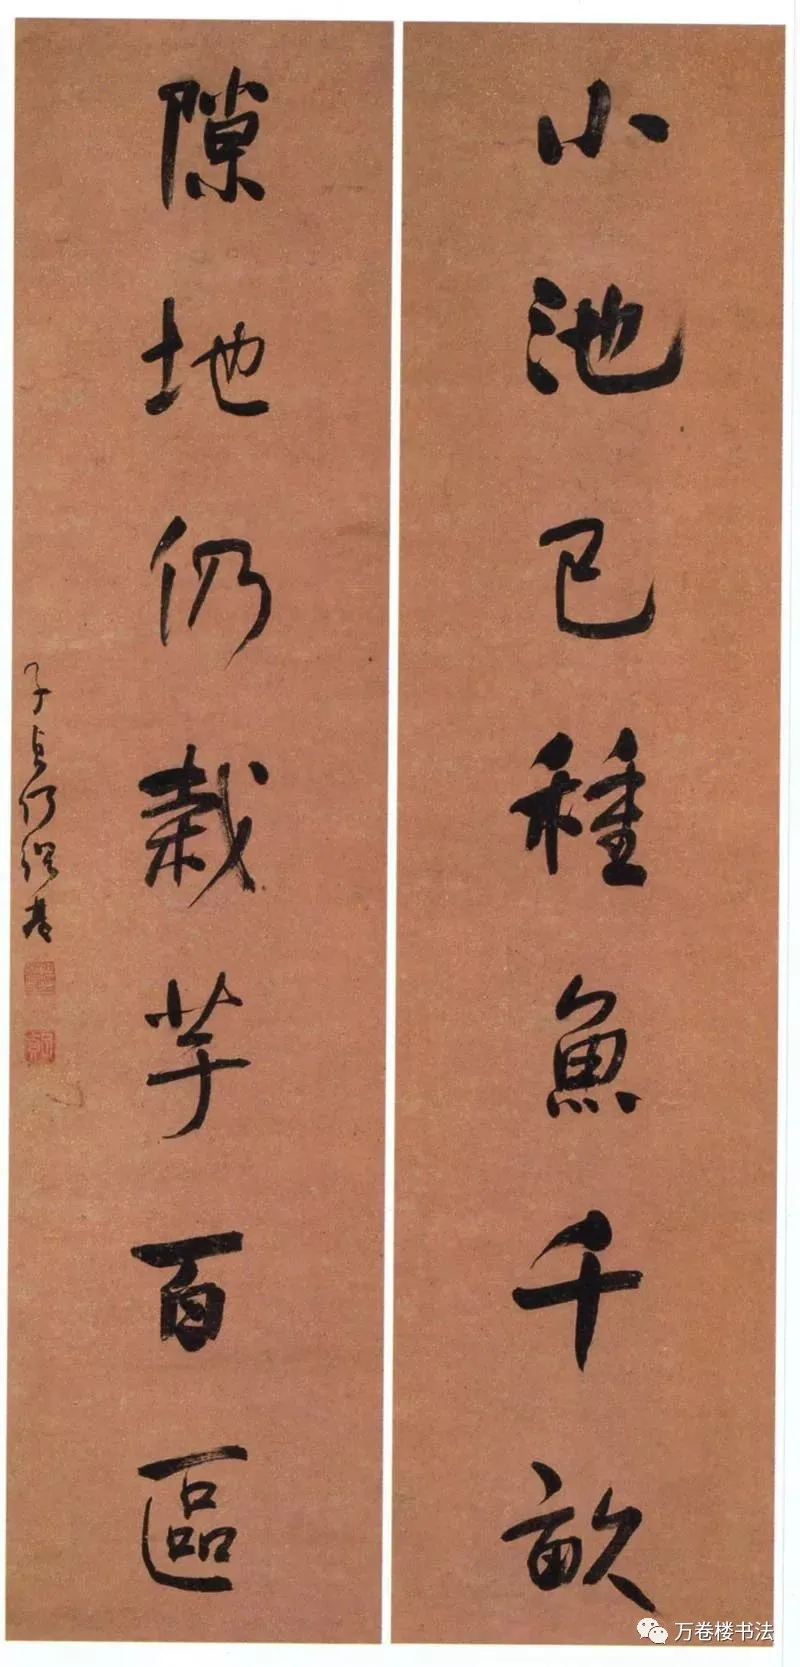 小池已種魚千畝
隙地仍栽芋百區
子貞何紹基
万卷楼书法